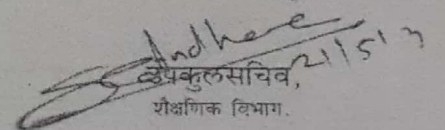 21/5/13
उपकुलसचिव,
शैक्षणिक विभाग.